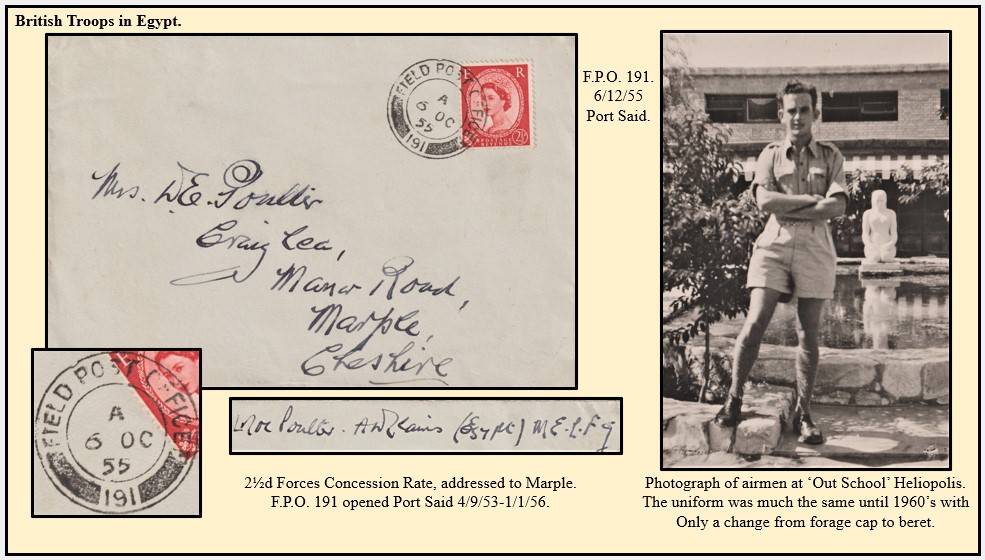 British Troops in Egypt.
FIELD POST OFFICE
A
6 OC
55
191
E R
POSTAGE
REVENUE
2½D
F.P.O. 191.
6/12/55
Port Said.
Mrs. D.E. Poulter
Craig Lea,
Manor Road,
Marple,
Cheshire
FIELD POST OFFICE
A
6 OC
55
191
Poulter. (Egypt) M.E.L.F
2½d Forces Concession Rate, addressed to Marple.
F.P.O. 191 opened Port Said 4/9/53-1/1/56.
Photograph of airmen at ‘Out School’ Heliopolis.
The uniform was much the same until 1960’s with
Only a change from forage cap to beret.